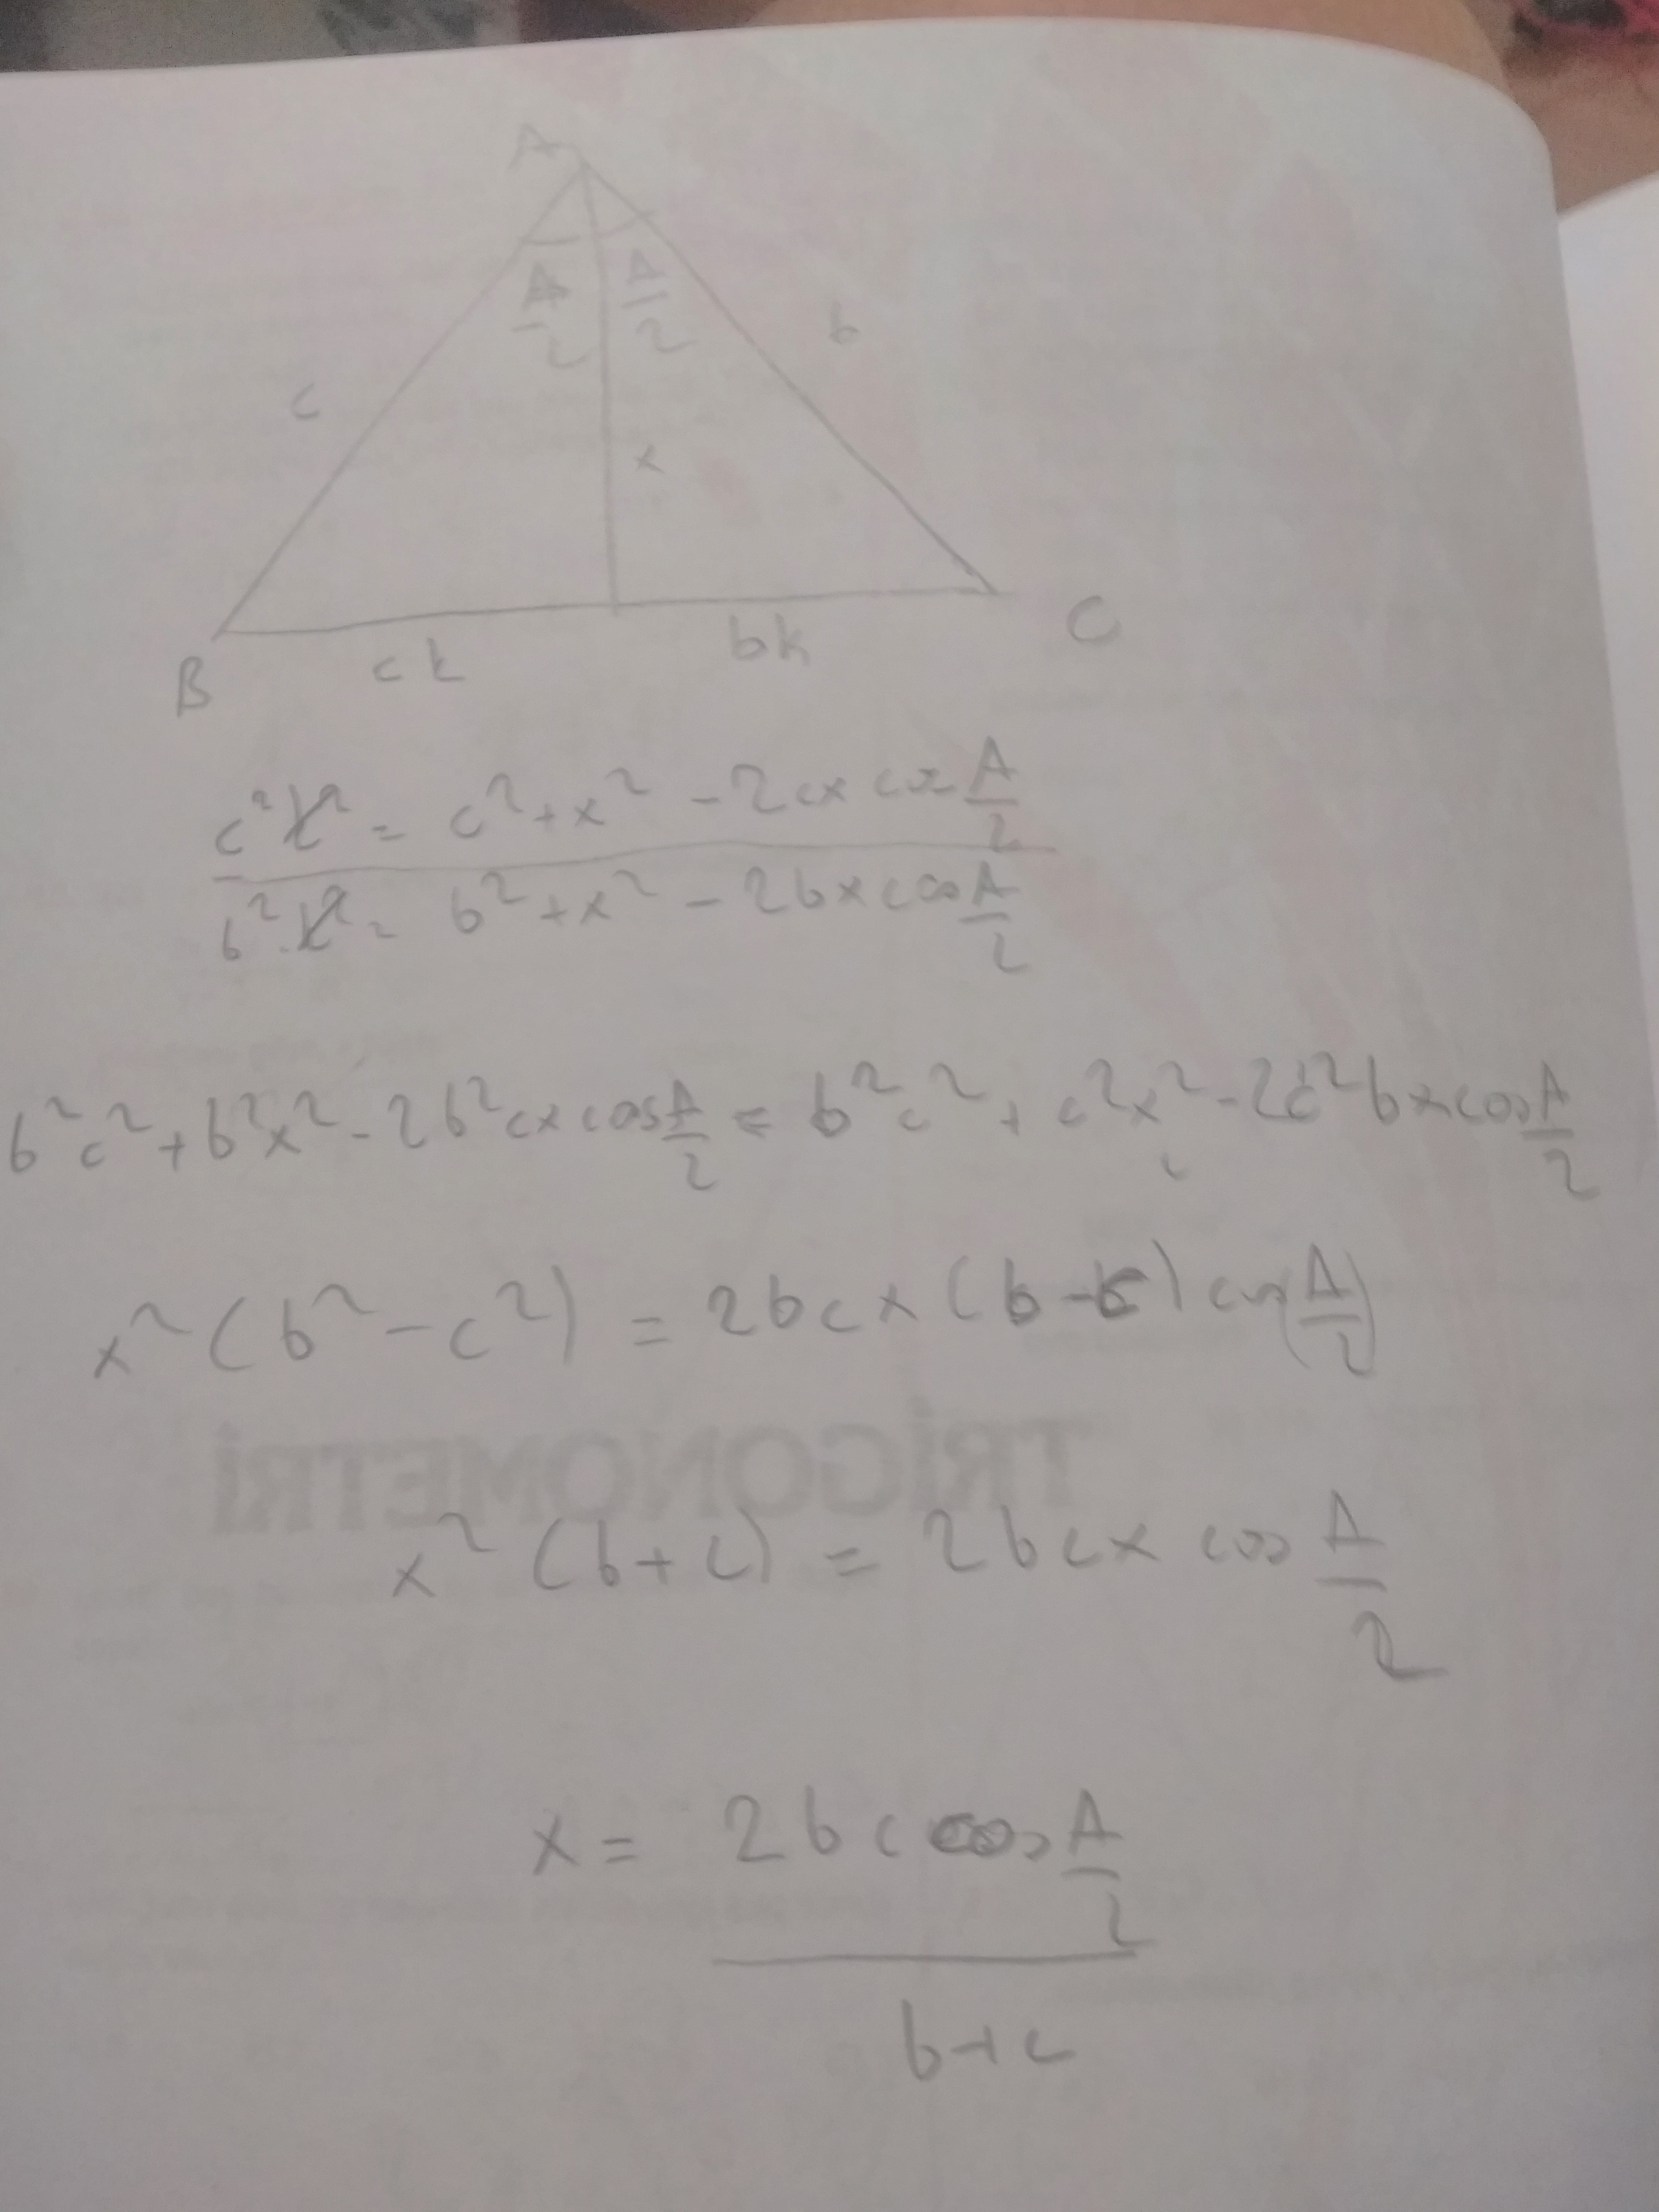 A
A/2 A/2
c b
x
B ck bk C
c²k² = c² + x² - 2cx cos A/2
b².k² = b² + x² - 2bx cos A/2
b²c² + b²x² - 2b²cx cos A/2 = b²c² + c²x² - 2c²bx cos A/2
x² (b² - c²) = 2bcx (b - c) cos (A/2)
TRİGONOMETRİ
x² (b + c) = 2bcx cos A/2
x = 2bc cos A/2
b + c